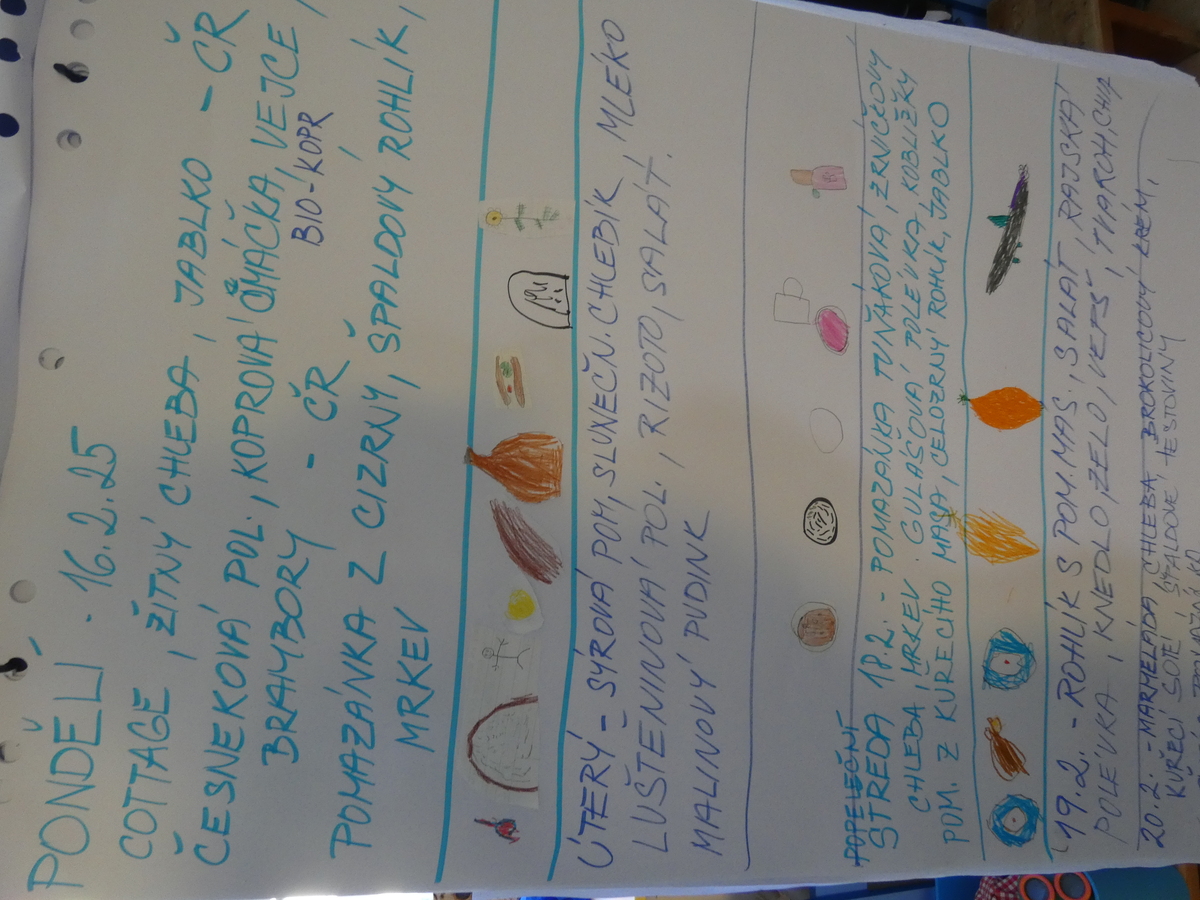 PONDĚLÍ - 16.2.25
COTTAGE, ŽITNÝ CHLEBA, JABLKO - ČR
ČESNEKOVÁ POL., KOPROVÁ OMÁČKA, VEJCE,
BRAMBORY - ČR BIO-KOPR
POMAZÁNKA Z CIZRNY, ŠPALDOVÝ ROHLÍK,
MRKEV
ÚTERÝ - SÝROVÁ POM, SLUNEČN. CHLEBÍK, MLÉKO
LUŠTĚNINOVÁ POL., RIZOTO, SALÁT.
MALINOVÝ PUDINK
POPELEČNÍ
STŘEDA 18.2. - POMAZÁNKA TUŇÁKOVÁ, ZRNÍČKOVÝ
CHLEBA, MRKEV. GULÁŠOVÁ POLÉVKA, KOBLIŽKY
POM. Z KUŘECÍHO MASA, CELOZRNÝ ROHLÍK, JABLKO
19.2. - ROHLÍK S POM. MAS, SALÁT, RAJSKÁ
POLÉVKA, KNEDLO, ZELO, VEPŠ, TVAROH, CHIA
20.2. - MARMELÁDA, CHLEBA BROKOLICOVÝ KRÉM,
KUŘECÍ SOTÉ, ŠPALDOVÉ TĚSTOVINY